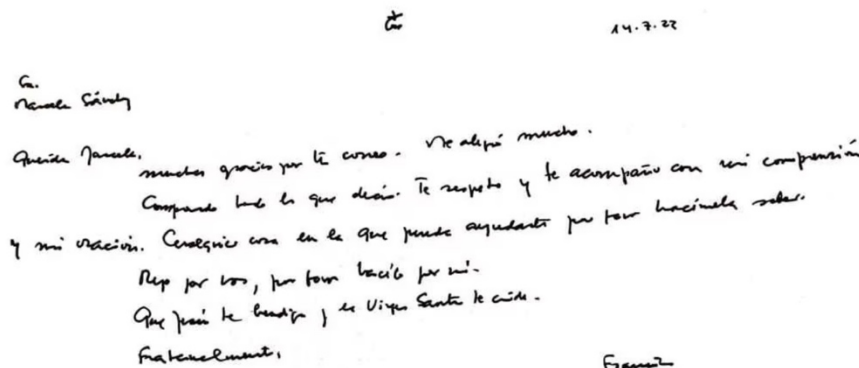 14.7.22
Sra.
Marcela Sánchez
Querida Marcela,
muchas gracias por tu correo. Me alegró mucho.
Comprendo todo lo que decís. Te respeto y te acompaño con mi comprensión
y mi oración. Cualquier cosa en la que pueda ayudarte por favor hacémela saber.
Rezo por vos, por favor hacélo por mí.
Que Jesús te bendiga y la Virgen Santa te cuide.
Fraternalmente,
Francisco